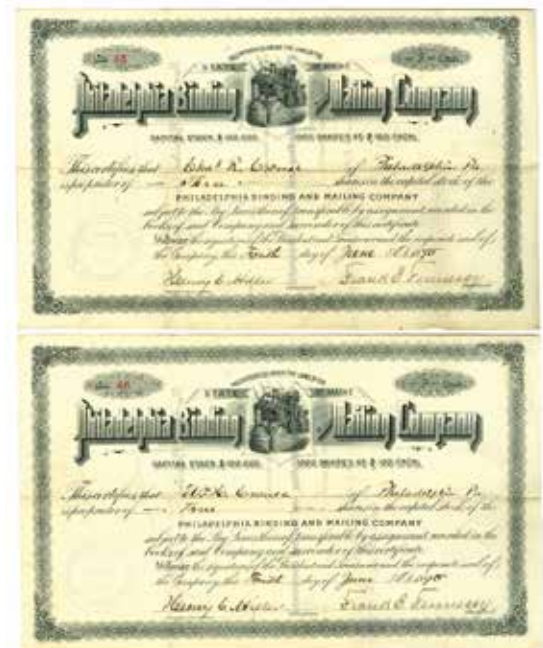 No. 45
INCORPORATED UNDER THE LAWS OF THE
STATE OF MAINE
Philadelphia Binding and Mailing Company
CAPITAL STOCK, $100,000. 1000 SHARES AT $100 EACH.
This certifies that Chas. K. of Philadelphia Pa.
is proprietor of Three shares in the capital stock of the
PHILADELPHIA BINDING AND MAILING COMPANY
subject to the By-Laws thereof transferable by assignment recorded in the
books of said Company and surrender of this certificate.
Witness the signatures of the President and Treasurer and the corporate seal of
the Company, this Tenth day of June
Henry C. Frank E.
No. 46
INCORPORATED UNDER THE LAWS OF THE
STATE OF MAINE
Philadelphia Binding and Mailing Company
CAPITAL STOCK, $100,000. 1000 SHARES AT $100 EACH.
This certifies that of Philadelphia Pa.
is proprietor of shares in the capital stock of the
PHILADELPHIA BINDING AND MAILING COMPANY
subject to the By-Laws thereof transferable by assignment recorded in the
books of said Company and surrender of this certificate.
Witness the signatures of the President and Treasurer and the corporate seal of
the Company, this Tenth day of June
Henry C. Frank E.